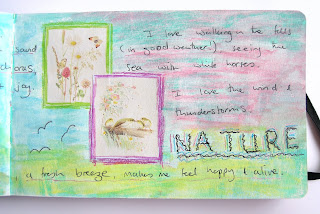 I love walking in the hills
sound (in good weather!) seeing the
sea with white horses.
say.
I love the wind &
thunderstorms.
NATURE
a fresh breeze, makes me feel happy & alive.